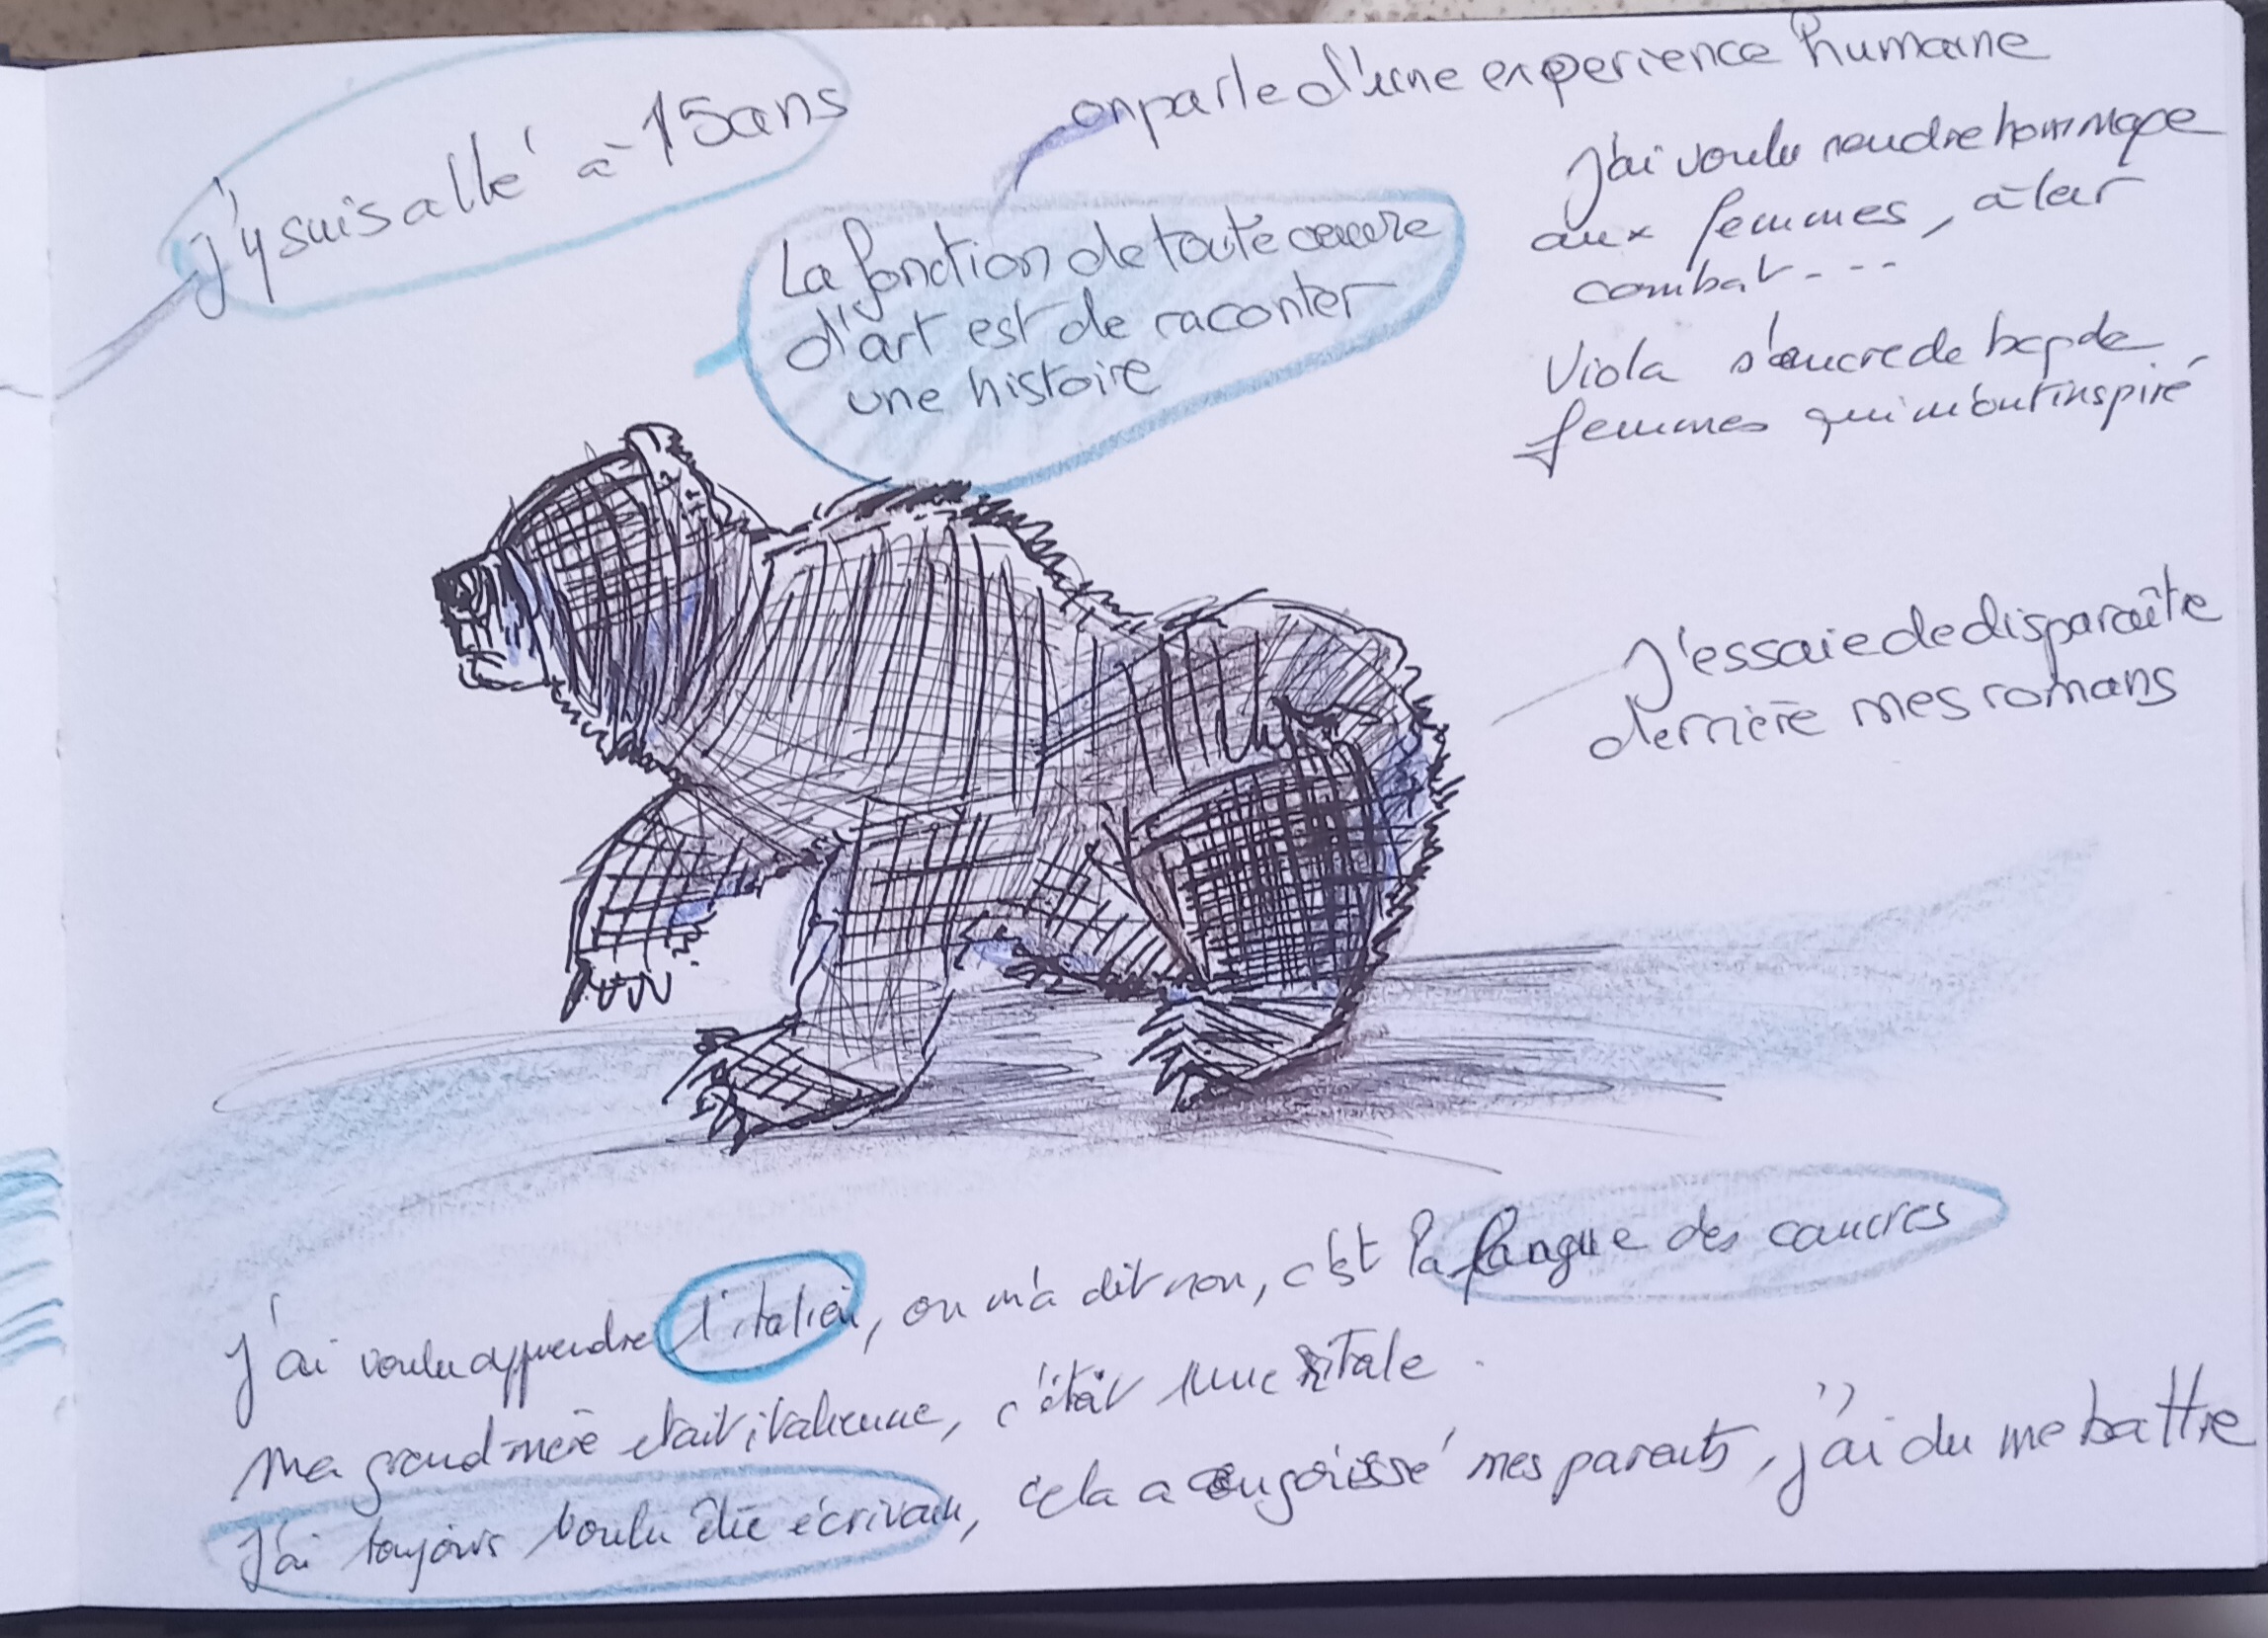 j'y suis allé à 15 ans
on parle d'une experience humaine
La fonction de toute oeuvre
d'art est de raconter
une histoire
J'ai voulu rendre hommage
aux femmes, à leur
combat---
Viola s'ancre de bcp de
femmes qui m'ont inspiré
J'essaie de disparaître
derrière mes romans
J'ai voulu apprendre l'italien, on m'a dit non, c'est la langue des cancres
Ma grand mère etait italienne, c'était une ritale.
J'ai toujours voulu être écrivain, cela a angoissé mes parents, j'ai du me battre